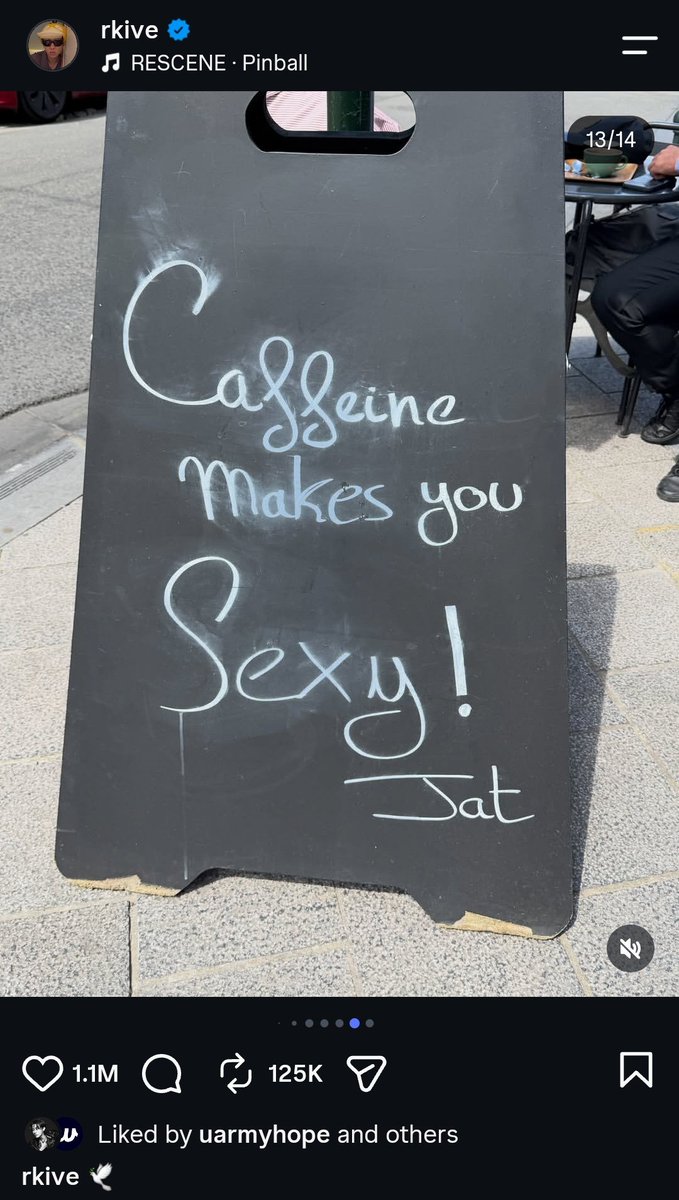 rkive
RESCENE · Pinball
13/14
Caffeine
makes you
Sexy!
Jat
1.1M
125K
Liked by uarmyhope and others
rkive 🕊️